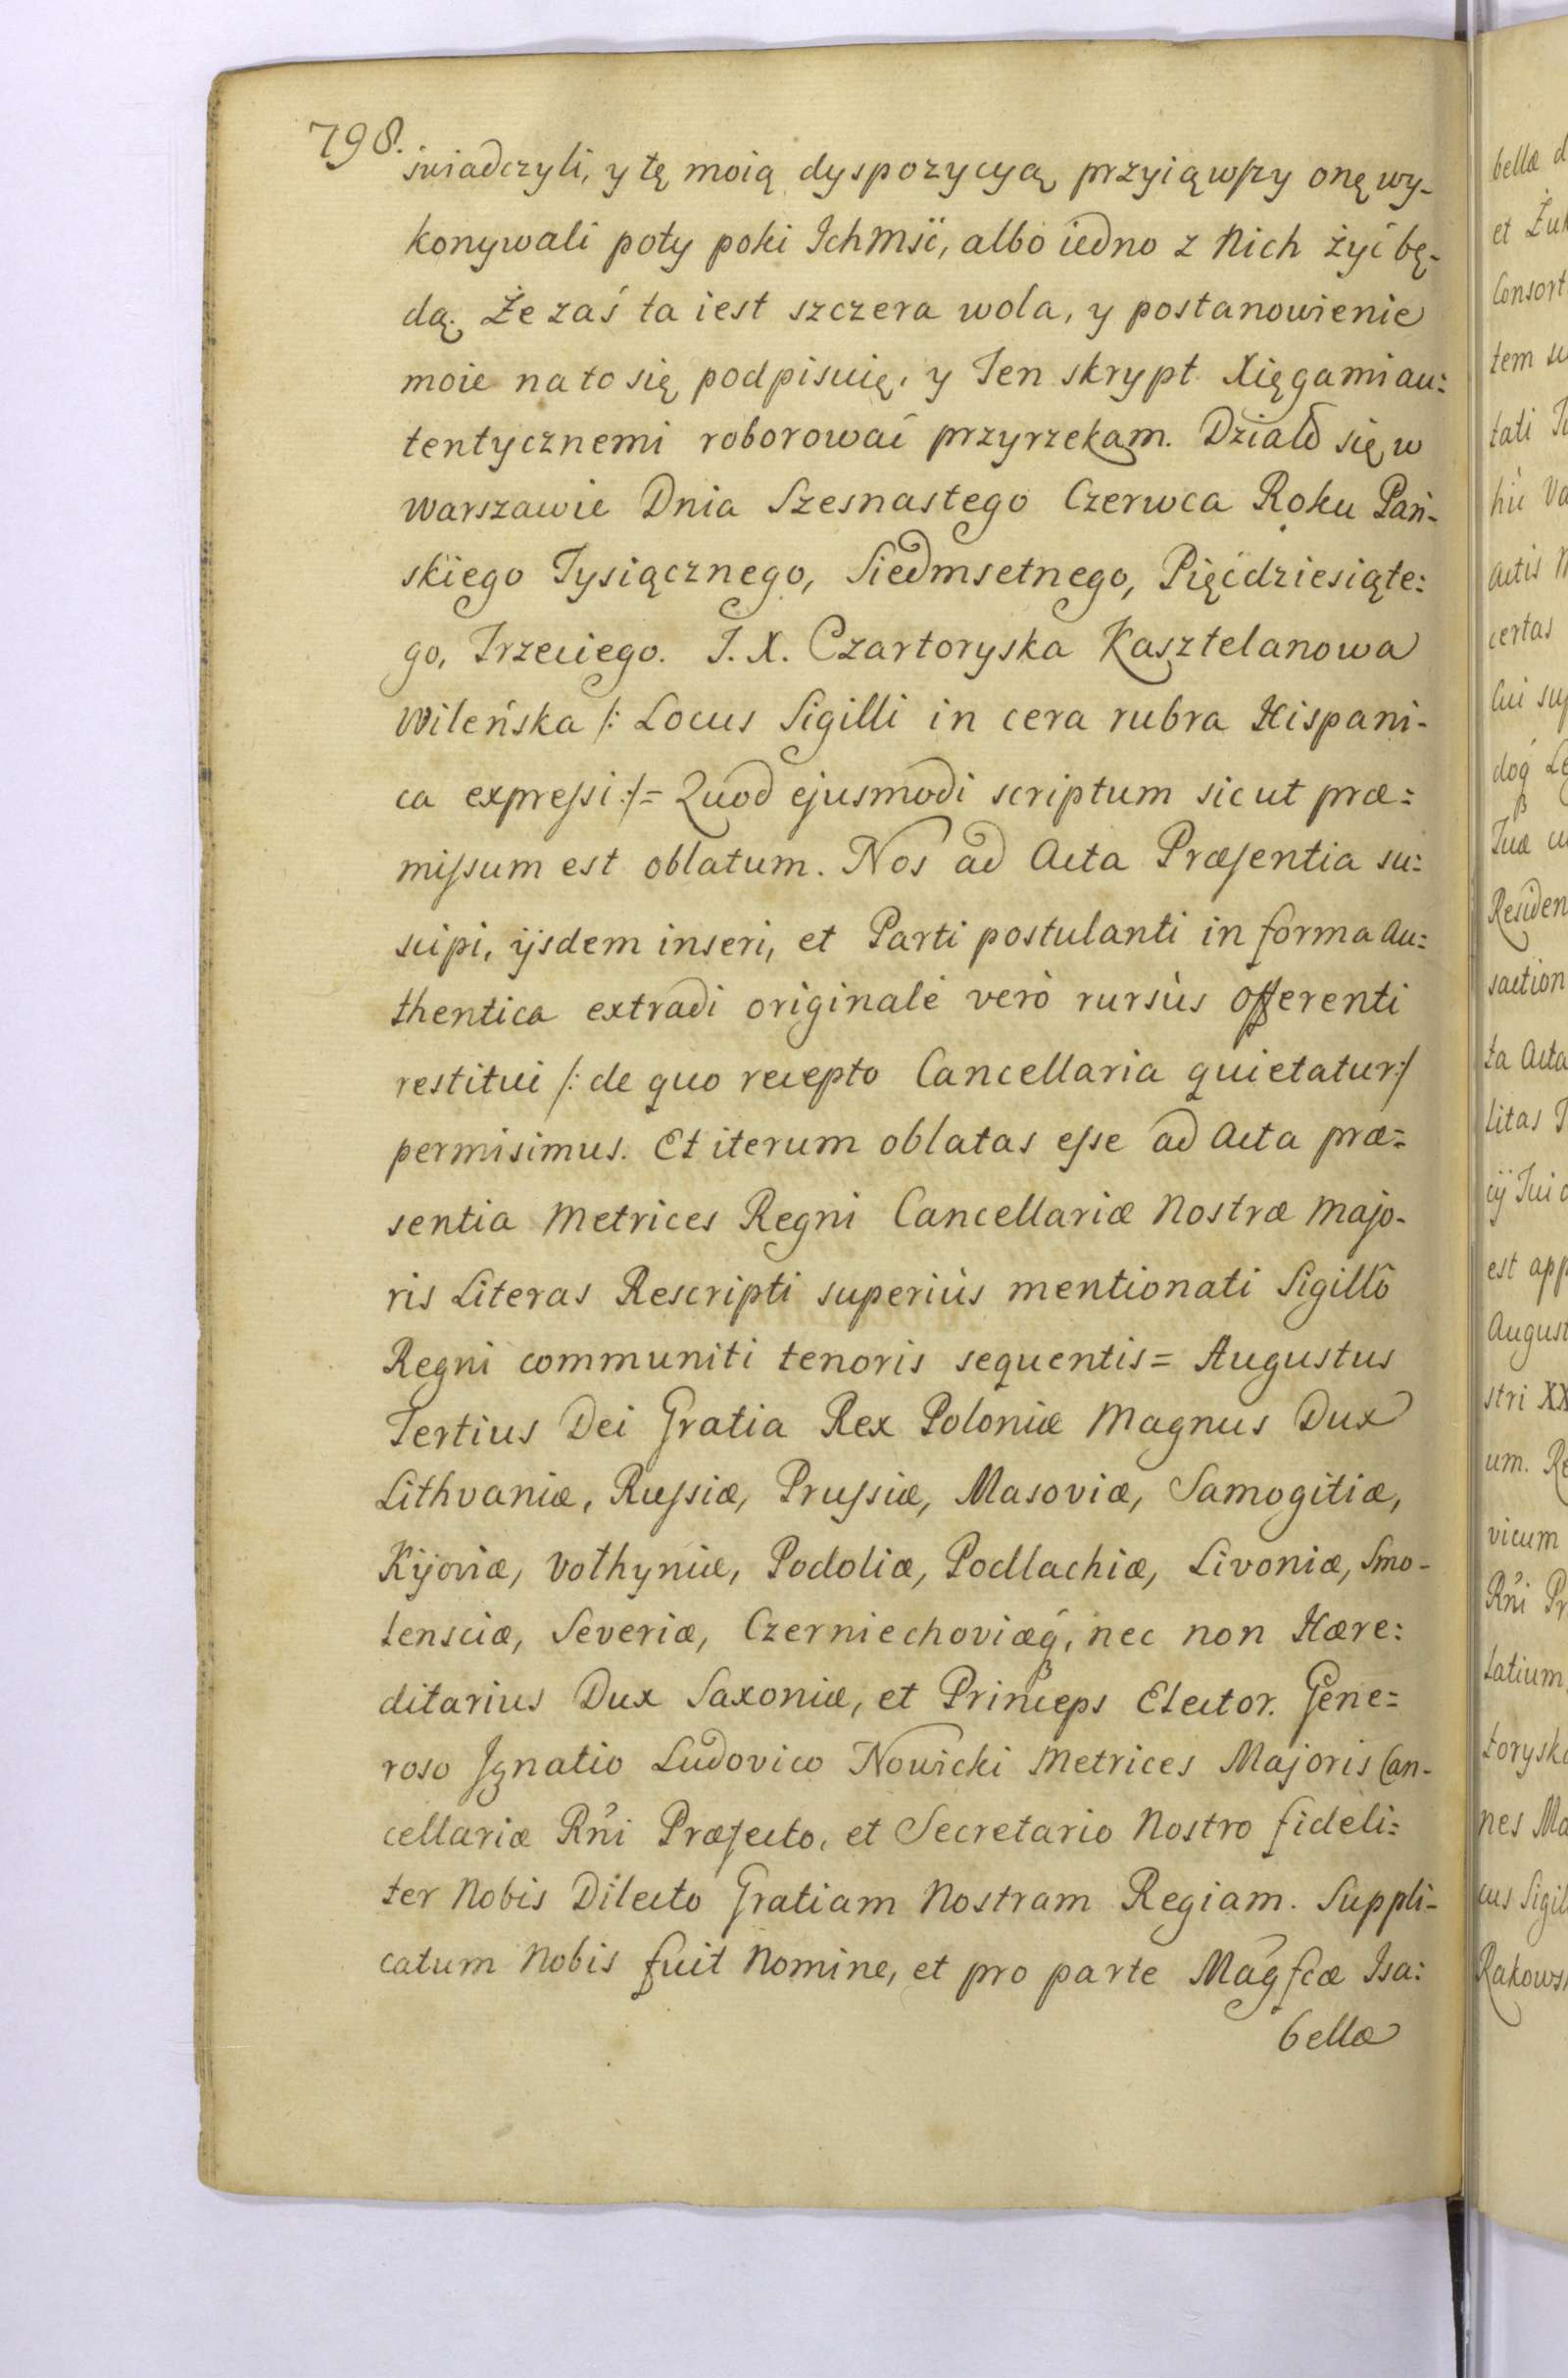 798.
świadczyli, y tę moią dyspozycyą przyiąwszy onę wy-
konywali poty poki Ichmść, albo iedno z Nich żyć bę-
dą. Że zaś ta iest szczera wola, y postanowienie
moie na to się podpisuię, y Ten skrypt Xięgami au:
tentycznemi roborować przyrzekam. Działo się w
Warszawie Dnia Szesnastego Czerwca Roku Pań-
skiego Tysiącznego, Siedmsetnego, Pięćdziesiąte:
go, Trzeciego. I. X. Czartoryska Kasztelanowa
Wileńska /: Locus Sigilli in cera rubra Hispani-
ca expressi :/= Quod ejusmodi scriptum sicut præ=
missum est oblatum. Nos ad Acta Præsentia su:
scipi, ijsdem inseri, et Parti postulanti in forma Au:
thentica extradi originale verò rursùs offerenti
restitui /: de quo recepto Cancellaria quietatur :/
permisimus. Et iterum oblatas esse ad Acta præ=
sentia Metrices Regni Cancellariæ Nostræ Majo-
ris Literas Rescripti superiùs mentionati Sigillô
Regni communiti tenoris sequentis= Augustus
Tertius Dei Gratia Rex Poloniæ Magnus Dux
Lithvaniæ, Russiæ, Prussiæ, Masoviæ, Samogitiæ,
Kijoviæ, Volhyniæ, Podoliæ, Podlachiæ, Livoniæ, Smo-
lensciæ, Severiæ, Czerniechoviæq́, nec non Hære:
ditarius Dux Saxoniæ, et Princeps Elector. Gene=
roso Ignatio Ludovico Nowicki Metrices Majoris Can-
cellariæ Rñi Præfecto, et Secretario Nostro fideli=
ter Nobis Dilecto Gratiam Nostram Regiam. Suppli-
catum Nobis fuit Nomine, et pro parte Mágfcæ Isa:
bellæ
bellæ d
et Żuk
Consort
tem su
tati
hic Va
actis
certas
Cui sup
doq́ Le
Tuæ
Residen
saction
ta Acta
litas
cij Tui
est app
August
stri XX
um. Re
vicum
Rñi Pr
latium,
torysk
nes Ma
cus Sigil
Rakows